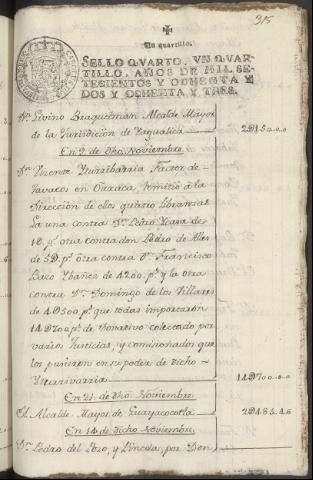 315
Un quartillo.
SELLO QVARTO, VN QVAR-
TILLO, AÑOS DE MIL SE-
TECIENTOS Y OCHENTA Y
DOS Y OCHENTA Y TRES.
Dn. Livino Alcalde Mayor
de la Jurisdicion de Yagualica 2915 0..0..0
En 9 de dho. Noviembre
Dn. Vicente Yturribarria Factor de
tavacos en Oaxaca, remitió á la
Direccion de ellos quatro libranzas
La una contra Dn. Pedro de
10. ps. otra contra don Pedro de Alles
de 5D. ps. otra contra Dn. Francisco
Bazo Ybañez de 4200. ps. y la otra
contra Dn. Domingo de los Villares
de 4D500. ps. que todas importaron
14D700 ps. de Donativo colectado por
varios Justicias, y comisionados que
los pusieron en su poder de dicho
Yturrivarria 14D700..0..0
En 21 de dho. Noviembre
El Alcalde Mayor de Guayacocotla
En 14 de dicho Noviembre
Dn. Pedro del Pozo, y por Don